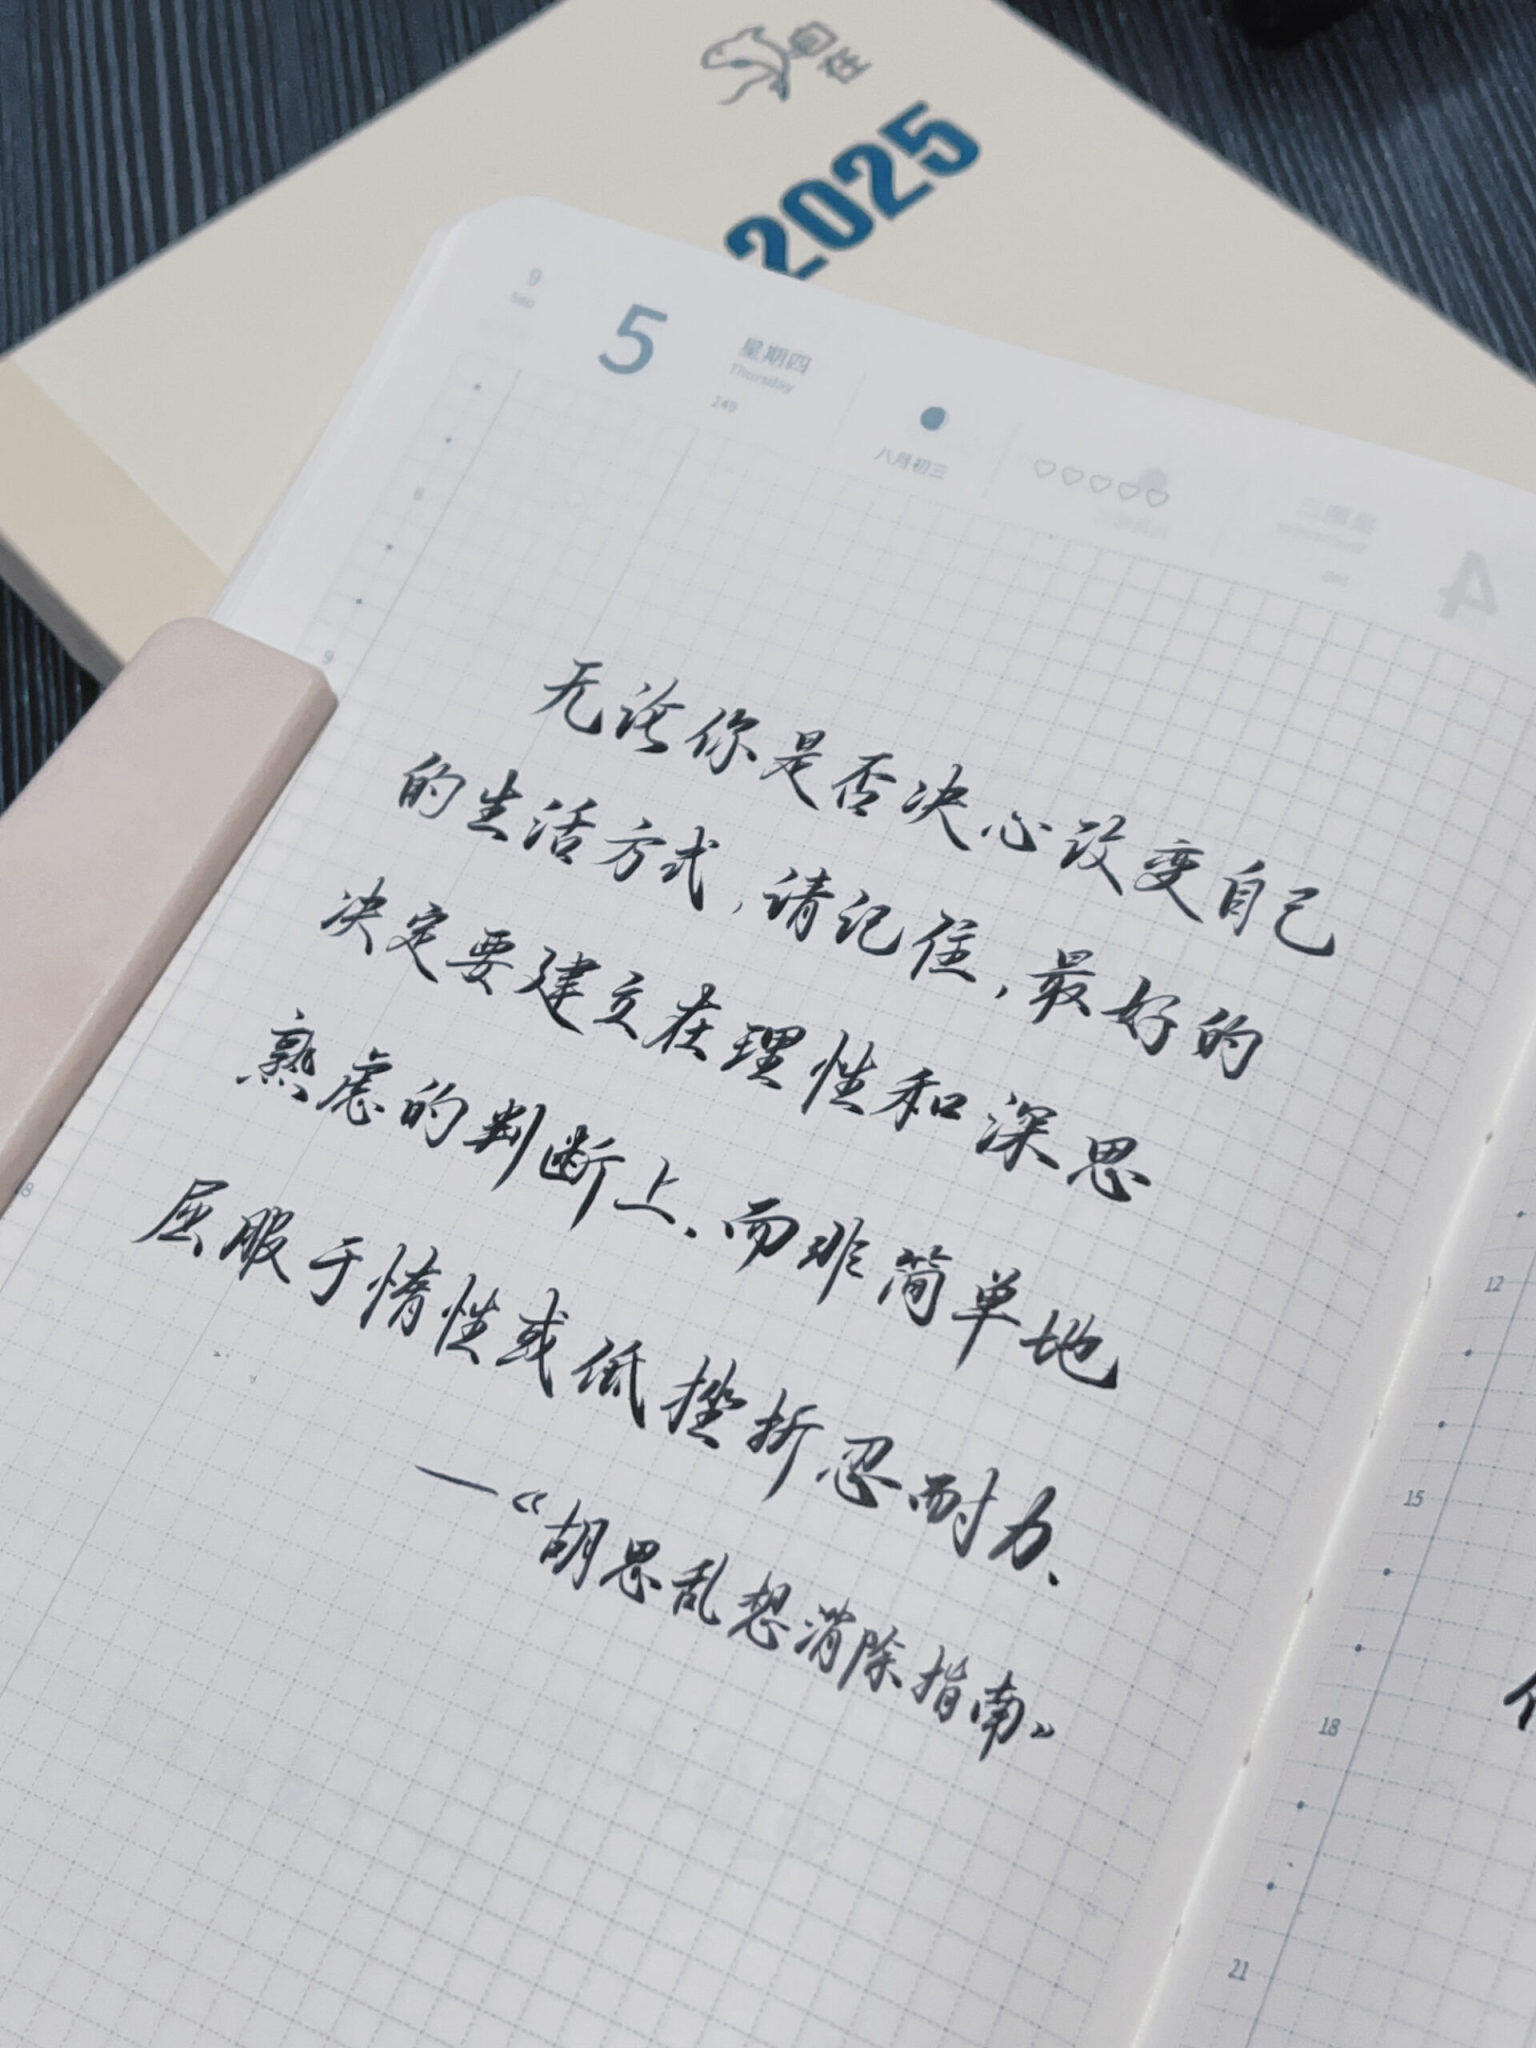 自在
2025
9
Sep
5
星期四
Thursday
249
八月初三
4
6
9
无论你是否决心改变自己
的生活方式,请记住,最好的
决定要建立在理性和深思
熟虑的判断上.而非简单地
屈服于惰性或低挫折忍耐力.
—《胡思乱想消除指南》
18
12
15
18
21